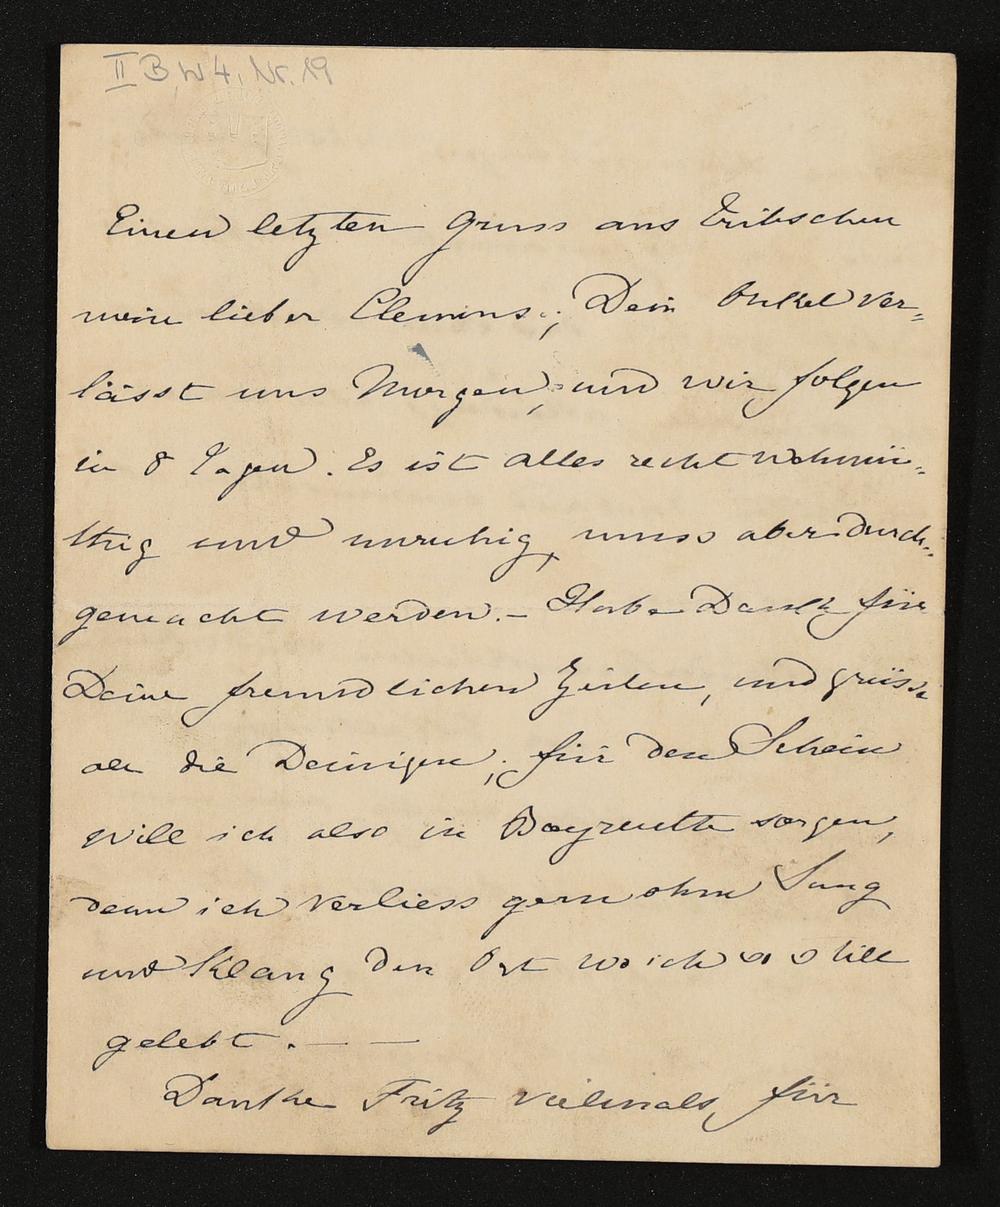 II B W 4, Nr. 19
Einen letzten Gruss aus Tribschen
mein lieber Clemens; Dein Onkel ver-
lässt uns Morgen, und wir folgen
in 8 Tagen. Es ist alles recht wehmü-
thig und unruhig, muss aber durch-
gemacht werden. – Habe Dank für
Deine freundlichen Zeilen, und grüsse
all die Deinigen; für den Schein
will ich also in Bayreuth sorgen,
denn ich verliess gern ohne Sang
und Klang den Ort wo ich so still
gelebt. — —
Danke Fritz vielmals, für